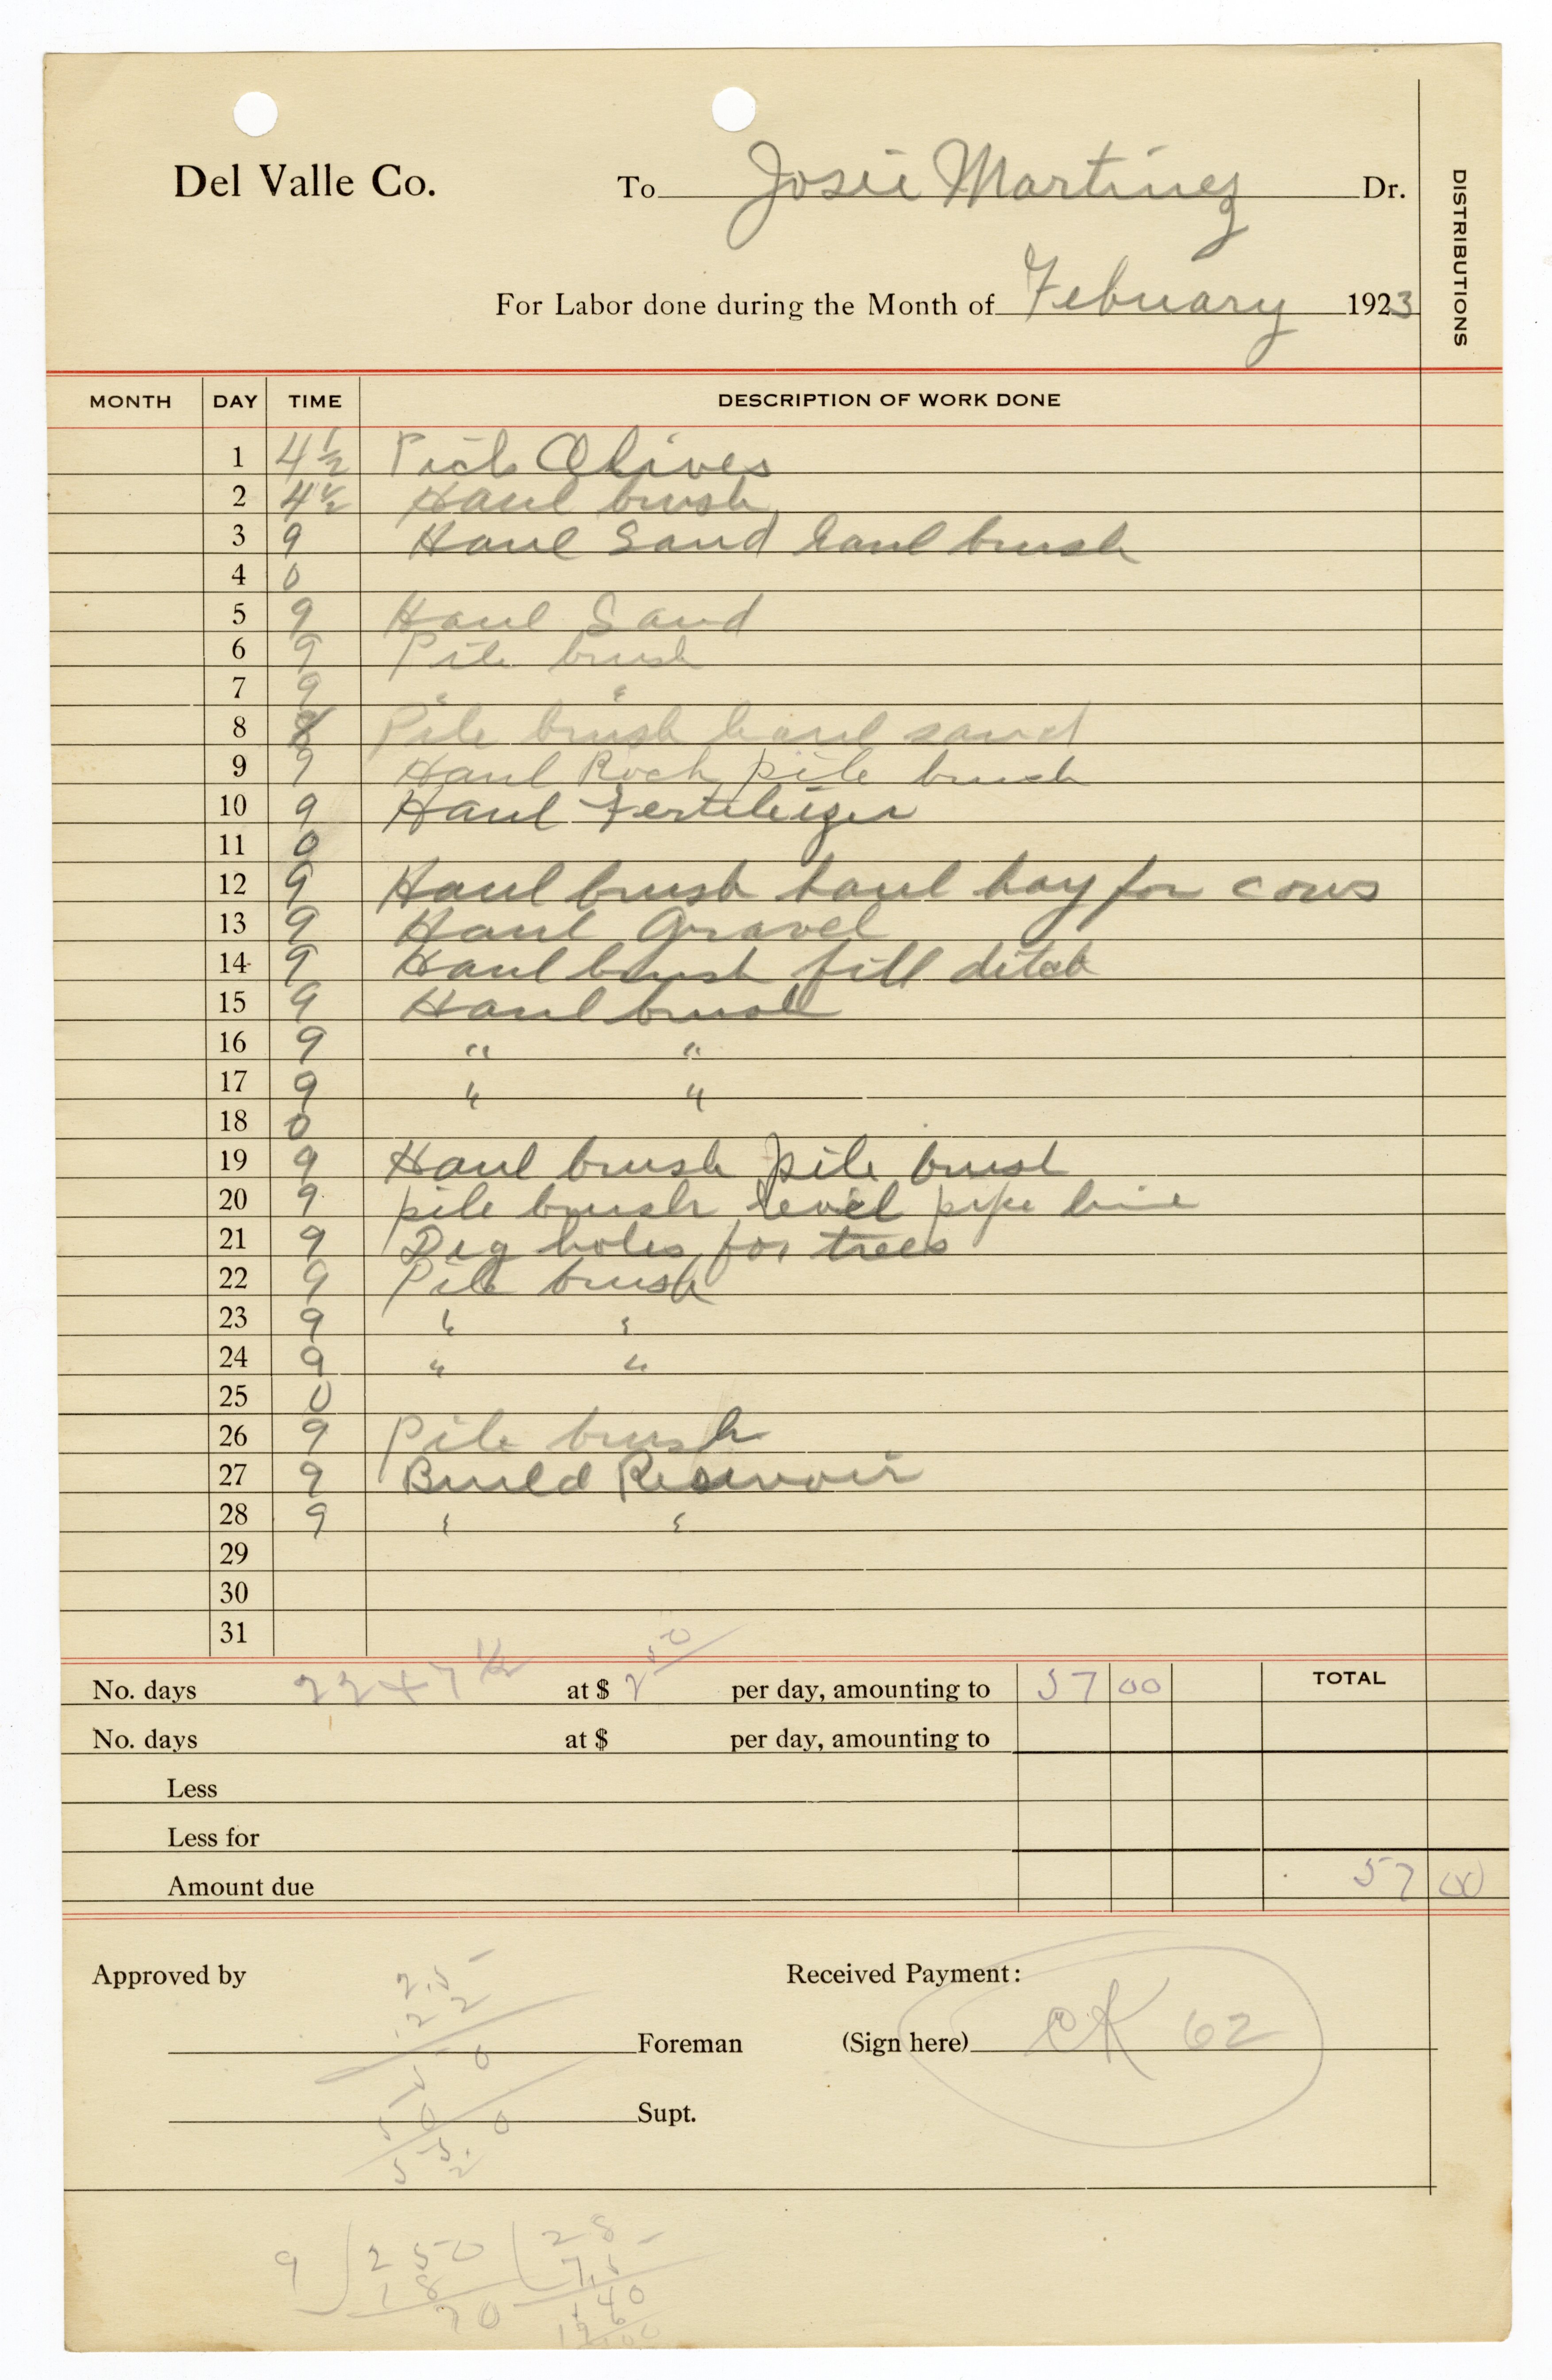 Del Valle Co. To Josie Martinez Dr.
DISTRIBUTIONS
For Labor done during the Month of Febuary 1923
MONTH DAY TIME DESCRIPTION OF WORK DONE
1 4 1/2 Pick Olives
2 4 1/2 Haul brush
3 9 Haul Sand haul brush
4 0
5 9 Haul Sand
6 9 Pile brush
7 9 " "
8 Pile brush haul sand
9 9 Haul Rock pile brush
10 9 Haul Fertilizer
11 0
12 9 Haul brush haul hay for cows
13 9 Haul Gravel
14 9 Haul brush fill ditch
15 9 Haul brush
16 9 " "
17 9 " "
18 0
19 9 Haul brush pile brush
20 9 pile brush level pipe line
21 9 Dig holes for trees
22 9 Pile brush
23 9 " "
24 9 " "
25 0
26 9 Pile brush
27 9 Build Resivoir
28 9 " "
29
30
31
No. days 22 + 7 1/2 at $ 2 50 per day, amounting to 57 00 TOTAL
No. days at $ per day, amounting to
Less
Less for
Amount due 57 00
Approved by Received Payment:
Foreman (Sign here) CK 62
Supt.
9 250 28
18 7.5
70 140